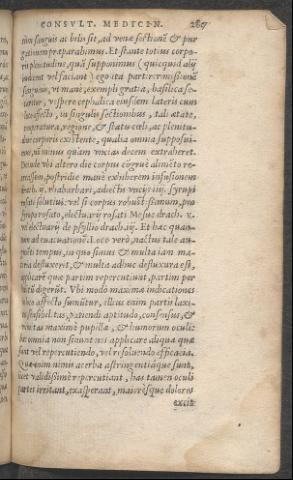 CONSVLT. MEDICIN. 287
tùm sanguis ac belis sit, ad venæ sectionẽ & pur
gationem præparabimus. Et stante totius corpo-
ris plenitudine, quâ supponimus (quicquid alij
videant vel faciant) ego ita partirer missionẽ
sanguinis, vt manè, exempli gratia, basilica se-
cetur, vespere cephalica eiusdem lateris cum
loco affecto, in singulis sectionibus, tali ætate,
temperatura, regione, & statu cœli, ac plenitu-
dine corporis existente, qualia omnia supposui-
mus, vt minus quàm vncias decem extraheret.
Deinde vbi altero die corpus cõgruè alimẽto re-
creassem, postridie manè exhiberem infusionem
drach. ij. rhabarbari, adiectis vncijs iiij. syrupi
rosati solutiui: vel si corpus robustissimum, pro
syrupo rosato, electuarij rosati Mesuæ drach.
vel electuarij de psyllio drach. iij. Et hæc quan-
tum ad euacuationẽ. Loco verò, nactus tale au-
gustis tempus, in quo simus & multa iam ma-
teria defluxerit, & multa adhuc defluxura est,
applicarẽ quæ partim repercutiunt, partim per
halitũ digerũt. Vbi modò maxima indicationes
loco affecto sumũtur, illius enim partis laxi-
tas sensibilitas, patiendi aptitudo, consensus, &
vicinitas maximè pupillæ, & humorum oculi:
hæc omnia non sinunt nos applicare aliqua quæ
sint vel repercutiendo, vel resoluendo efficacia.
Quæ enim nimis acerba astringentiáque sunt,
licet validissimè repercutiant, has tamen oculi
partes irritant, exasperant, maiorésque dolores
excit